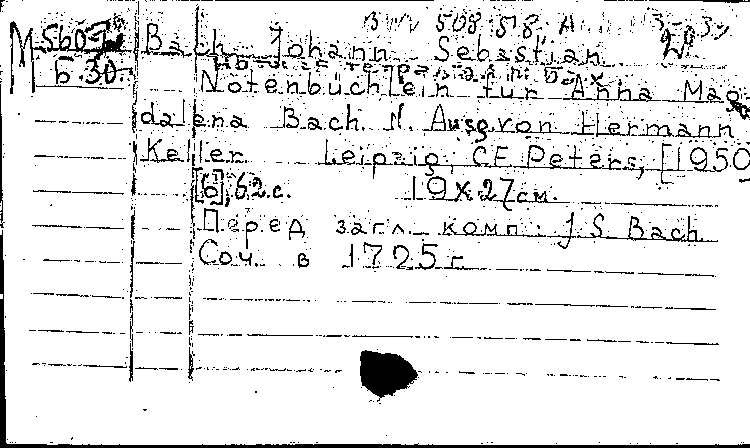 BWV 508
М 5607 Bach Johann Sebastian
Б.30. Notenbüchlein für Anna Mag-
dalena Bach. N. Ausg. von Hermann
Keller Leipzig, C.F. Peters, [1950
[6], 62.с. 19x27см.
Перед загл. комп.: J.S. Bach
Соч. в 1725г